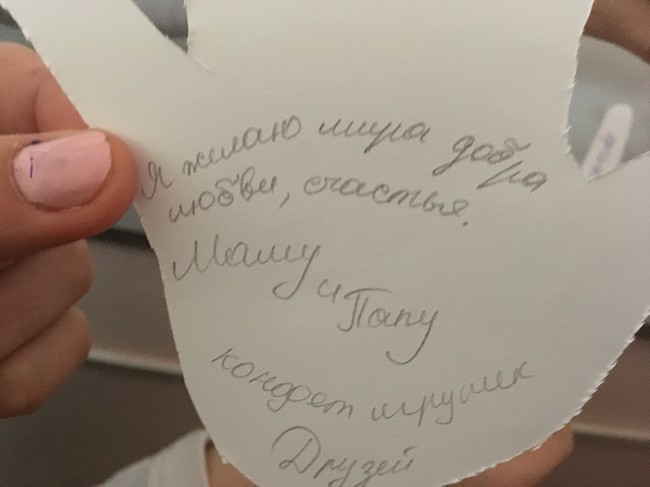 Я желаю мира добра
любви, счастья.
Маму
и
Папу
конфет игрушек
Друзей